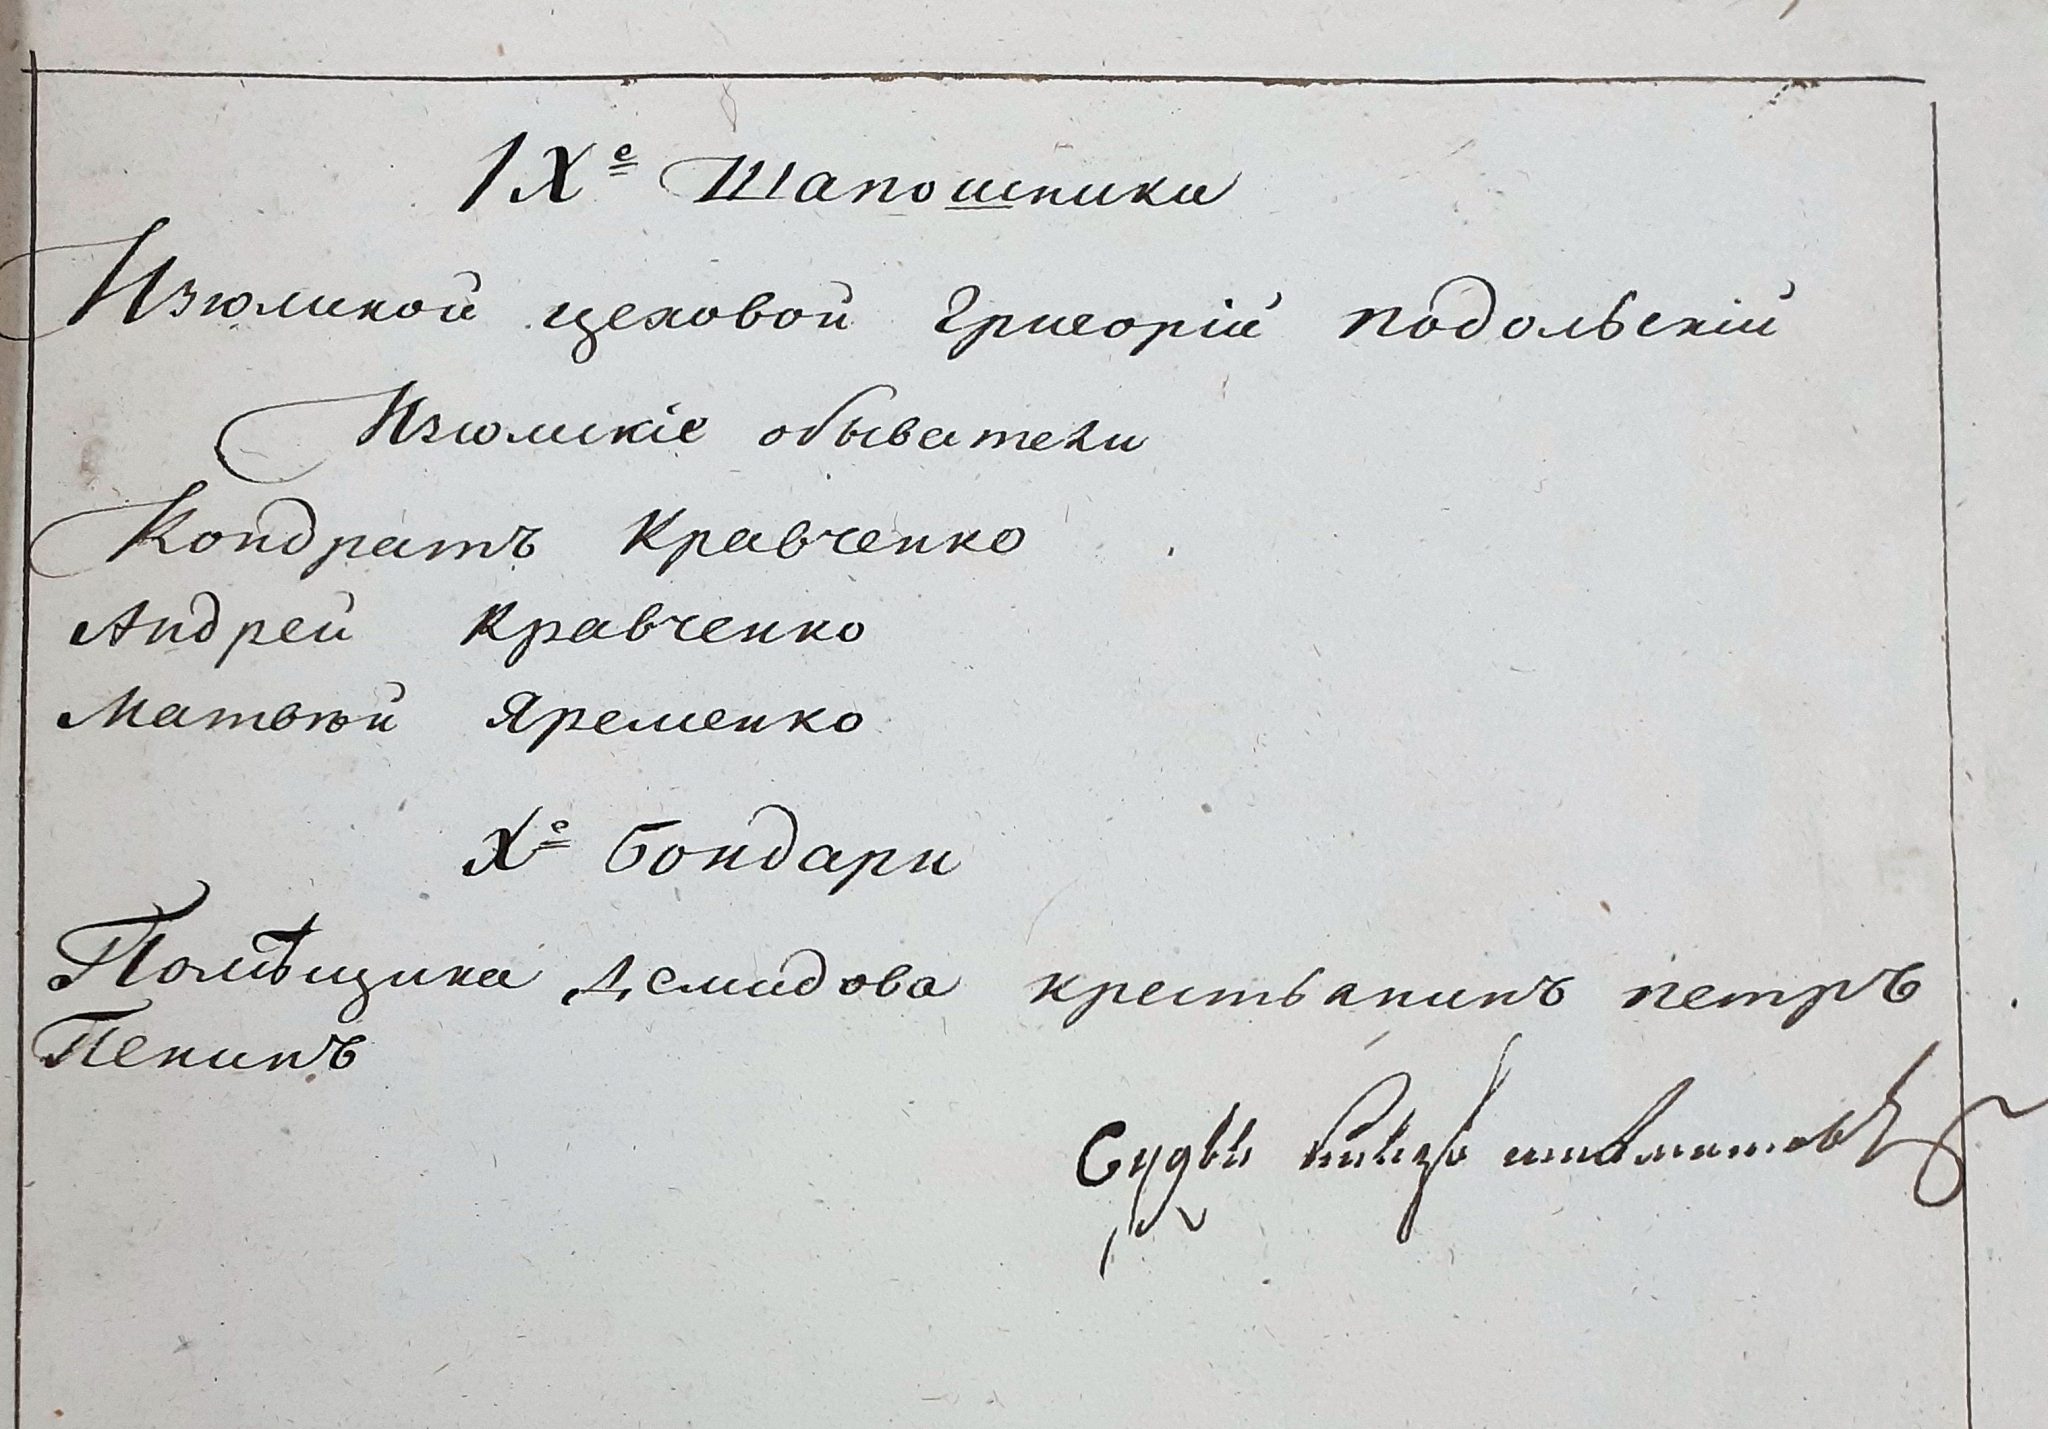 IХ<sup>е</sup> Шапошники
Изюмской цеховой Григорій подольскій
Изюмскіе обыватели
Кондратъ Кравченко
Андрей Кравченко
Матвѣй Яременко
Х<sup>е</sup> Бондари
Помѣщика Демидова крестьянинъ петръ
Пенинъ
Судьи